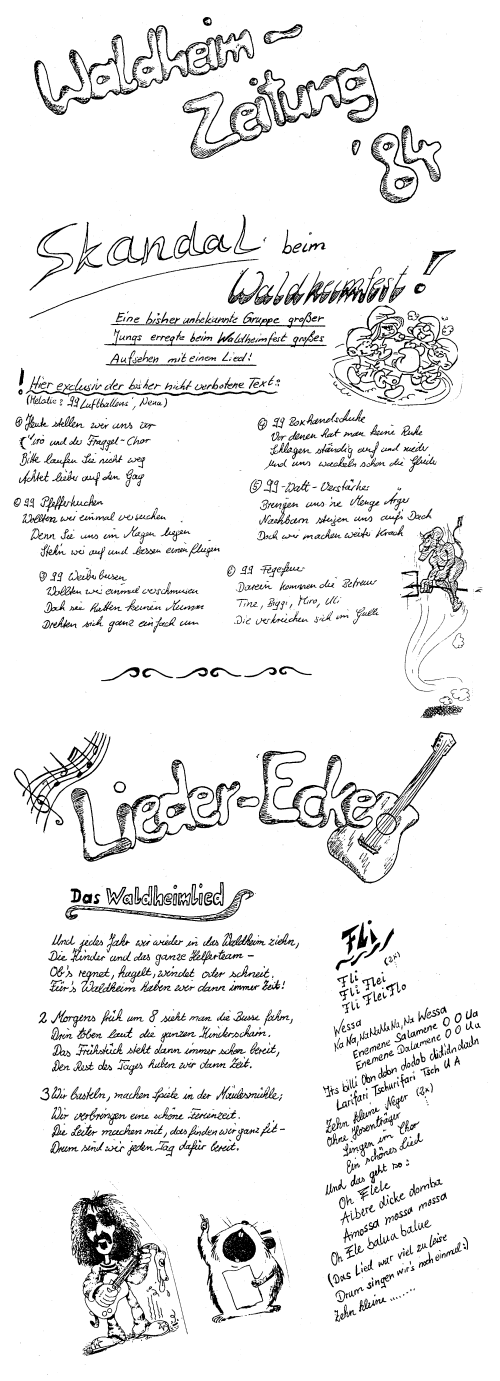 Waldheim-
Zeitung
'84
Skandal beim
Waldheimfest!
Eine bisher unbekannte Gruppe großer
Jungs erregte beim Waldheimfest großes
Aufsehen mit einem Lied!
! Hier exclusiv der bisher nicht verbotene Text:
(Melodie: 99 Luftballons, Nena)
① Heute stellen wir uns vor
und der Fraggel-Chor
Bitte laufen Sie nicht weg
Achtet lieber auf den Gag
② 99 Pfefferkuchen
Wollten wir einmal versuchen
Denn Sie uns im Magen liegen
Steh'n wir auf und lassen einen fliegen
③ 99 Weiberbusen
Wollten wir einmal verschmusen
Doch sie hatten keinen
Drehten sich ganz einfach um
④ 99 Boxhandschuhe
Vor denen hat man keine Ruhe
Schlagen ständig auf und nieder
und uns wackeln schon die Glieder
⑤ 99-Watt-Verstärker
Bringen uns 'ne Menge Ärger
Nachbarn steigen uns auf's Dach
Doch wir machen weiter Krach
⑥ 99 Fegefeuer
Darein kommen die Betreuer
Tine, Biggi, Miro, Uli
Die verkriechen sich im Gulli
Lieder-Ecke
Das Waldheimlied
Und jedes Jahr wir wieder in das Waldheim ziehn,
Die Kinder und das ganze Helferteam –
Ob's regnet, hagelt, windet oder schneit.
Für's Waldheim haben wir dann immer Zeit!
2 Morgens früh um 8 sieht man die Busse fahrn,
Drin toben laut die ganzen Kinderscharn.
Das Frühstück steht dann immer schon bereit,
Den Rest des Tages haben wir dann Zeit.
3 Wir basteln, machen Spiele in der Mäulesmühle;
Wir verbringen eine schöne Ferienzeit.
Die Leiter machen mit, das finden wir ganz fit –
Drum sind wir jeden Tag dafür bereit.
Fli
Fli (2x)
Fli Flei
Fli Flei Flo
Wessa
Na Na, NaNaNaNa, Na Wessa
Enemene Salamene O O Ua
Enemene Dalamene O O Ua
Its billi Obn dobn dodob dbididndadn
Larifari Tschurifari Tsch U A
Zehn kleine Neger (3x)
Ohne Hosenträger
Singen im Chor
Ein schönes Lied
Und das geht so:
Oh Flele
Albere dicke domba
Amossa mossa mossa
Oh Fle balua balue
(Das Lied war viel zu leise
Drum singen wir's noch einmal:)
Zehn kleine .......